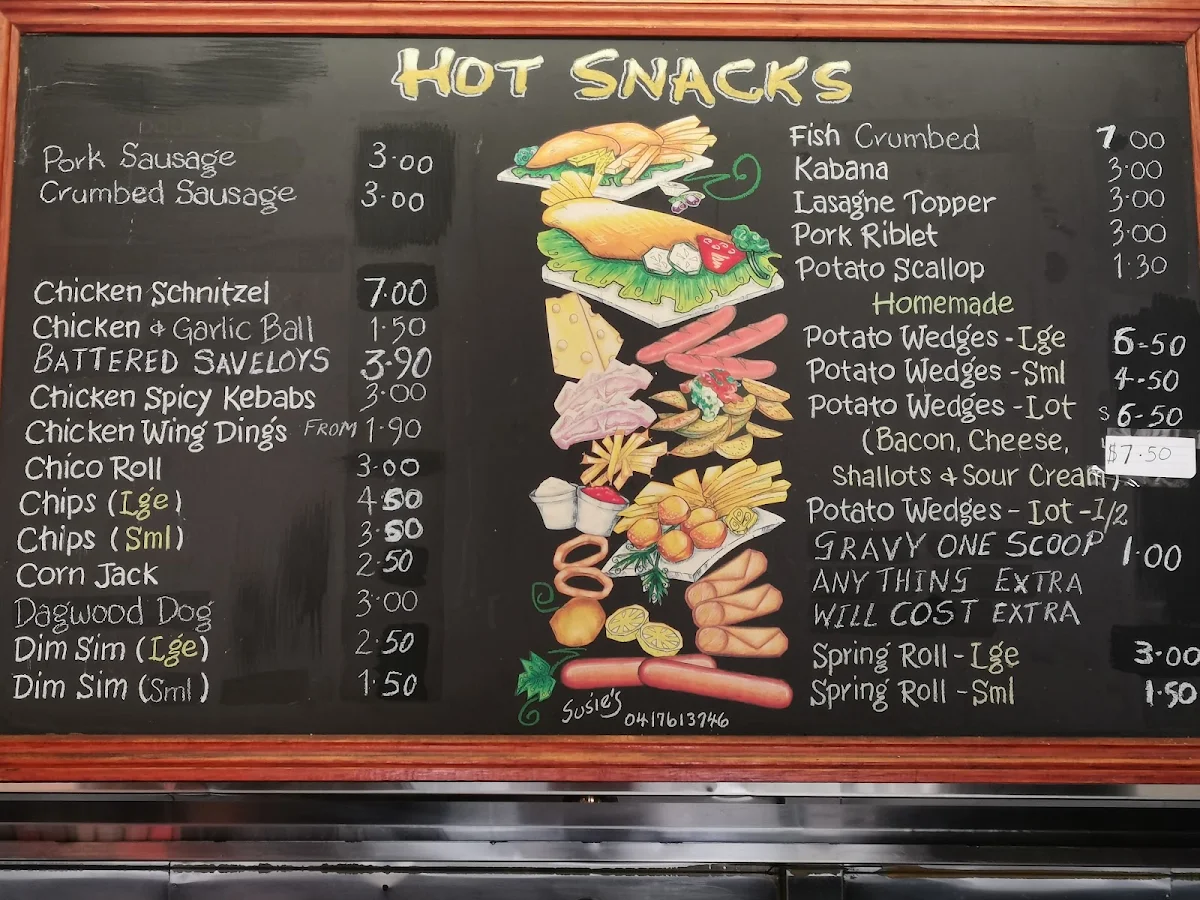 HOT SNACKS
Pork Sausage 3.00
Crumbed Sausage 3.00
Chicken Schnitzel 7.00
Chicken & Garlic Ball 1.50
BATTERED SAVELOYS 3.90
Chicken Spicy Kebabs 3.00
Chicken Wing Dings FROM 1.90
Chico Roll 3.00
Chips (Lge) 4.50
Chips (Sml) 3.50
Corn Jack 2.50
Dagwood Dog 3.00
Dim Sim (Lge) 2.50
Dim Sim (Sml) 1.50
Susie's 0417613746
Fish Crumbed 7.00
Kabana 3.00
Lasagne Topper 3.00
Pork Riblet 3.00
Potato Scallop 1.30
Homemade
Potato Wedges - Lge 6-50
Potato Wedges - Sml 4-50
Potato Wedges - Lot $ 6-50
(Bacon, Cheese, $7.50
Shallots & Sour Cream)
Potato Wedges - Lot - 1/2
GRAVY ONE SCOOP 1.00
ANY THING EXTRA
WILL COST EXTRA
Spring Roll - Lge 3.00
Spring Roll - Sml 1.50